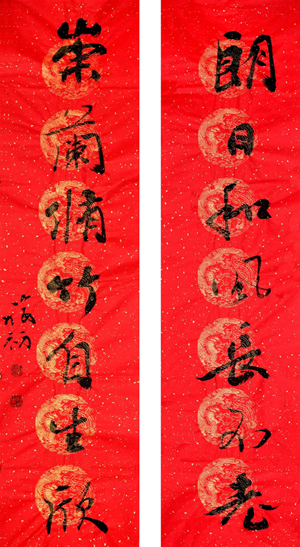 朗日和风长不老
崇兰脩竹自生欣